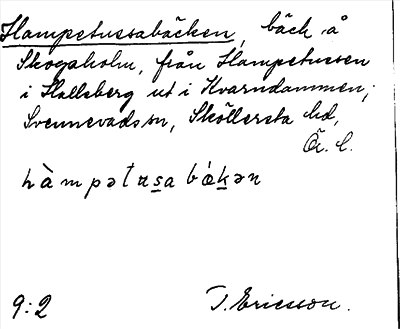 Hampetussabäcken, bäck å
Skogaholm, från Hampetussen
i Hallsberg ut i Kvarndammen;
Svennevads sn, Sköllersta hd,
Ör. l.
hàmpətusa bákən
9:2 T. Ericsson.